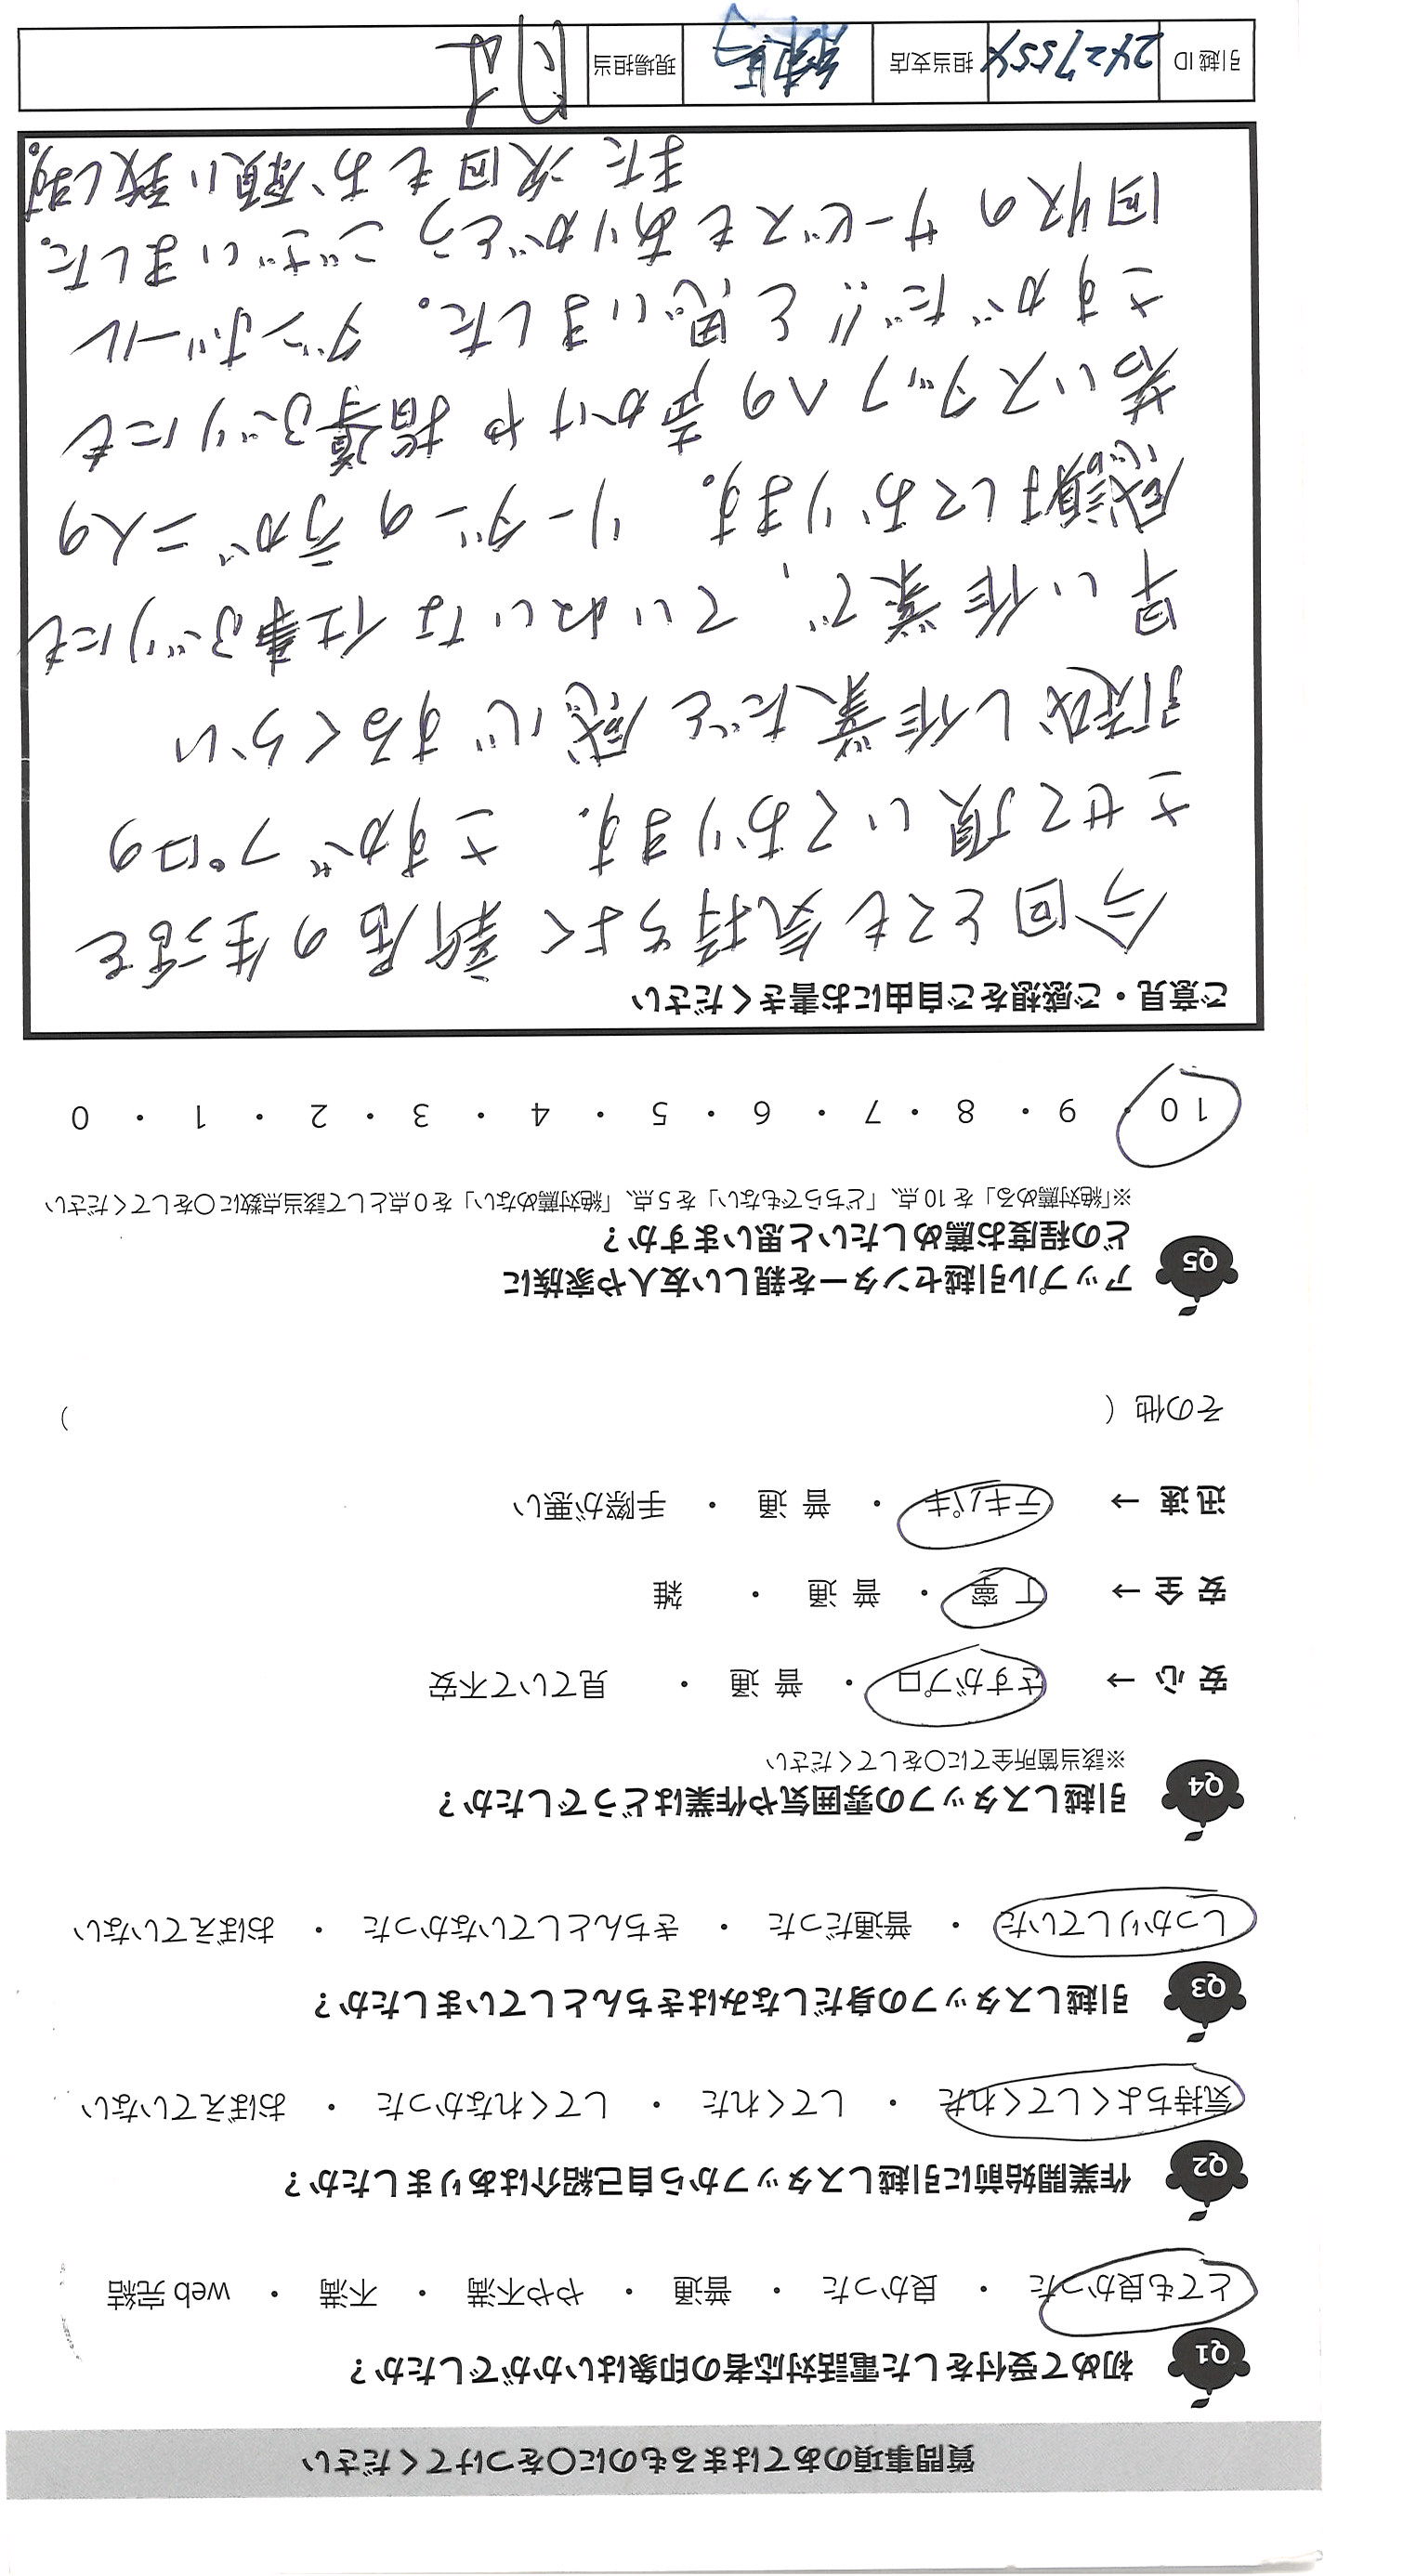 質問事項のあてはまるものに〇をつけてください
Q1 初めて受付をした電話対応者の印象はいかがでしたか？
とても良かった ・ 良かった ・ 普通 ・ やや不満 ・ 不満 ・ web 完結
Q2 作業開始前に引越しスタッフから自己紹介はありましたか？
気持ちよくしてくれた ・ してくれた ・ してくれなかった ・ おぼえていない
Q3 引越しスタッフの身だしなみはきちんとしていましたか？
しっかりしていた ・ 普通だった ・ きちんとしていなかった ・ おぼえていない
Q4 引越しスタッフの雰囲気や作業はどうでしたか？
※該当箇所全てに〇をしてください
安 心 → さすがプロ ・ 普 通 ・ 見ていて不安
安 全 → 丁 寧 ・ 普 通 ・ 雑
迅 速 → テキパキ ・ 普 通 ・ 手際が悪い
その他（ ）
Q5 アップル引越センターを親しい友人や家族に
どの程度お薦めしたいと思いますか？
※「絶対薦める」を 10 点、「どちらでもない」を 5 点、「絶対薦めない」を 0 点として該当点数に〇をしてください
10 ・ 9 ・ 8 ・ 7 ・ 6 ・ 5 ・ 4 ・ 3 ・ 2 ・ 1 ・ 0
ご意見・ご感想をご自由にお書きください
今回とても気持ちよく新居の生活を
させて頂いております。さすがプロの
引越し作業だと感心するくらい
早い作業で、ていねいな仕事ぶりにも
感謝しております。リーダーの方が二人の
若いスタッフへの声かけや指導ぶりにも
さすがだ!!と思いました。ダンボール
回収のサービスもありがとうございました。
また次回もお願い致します。
引越 ID 2427554 担当支店 練馬 現場担当